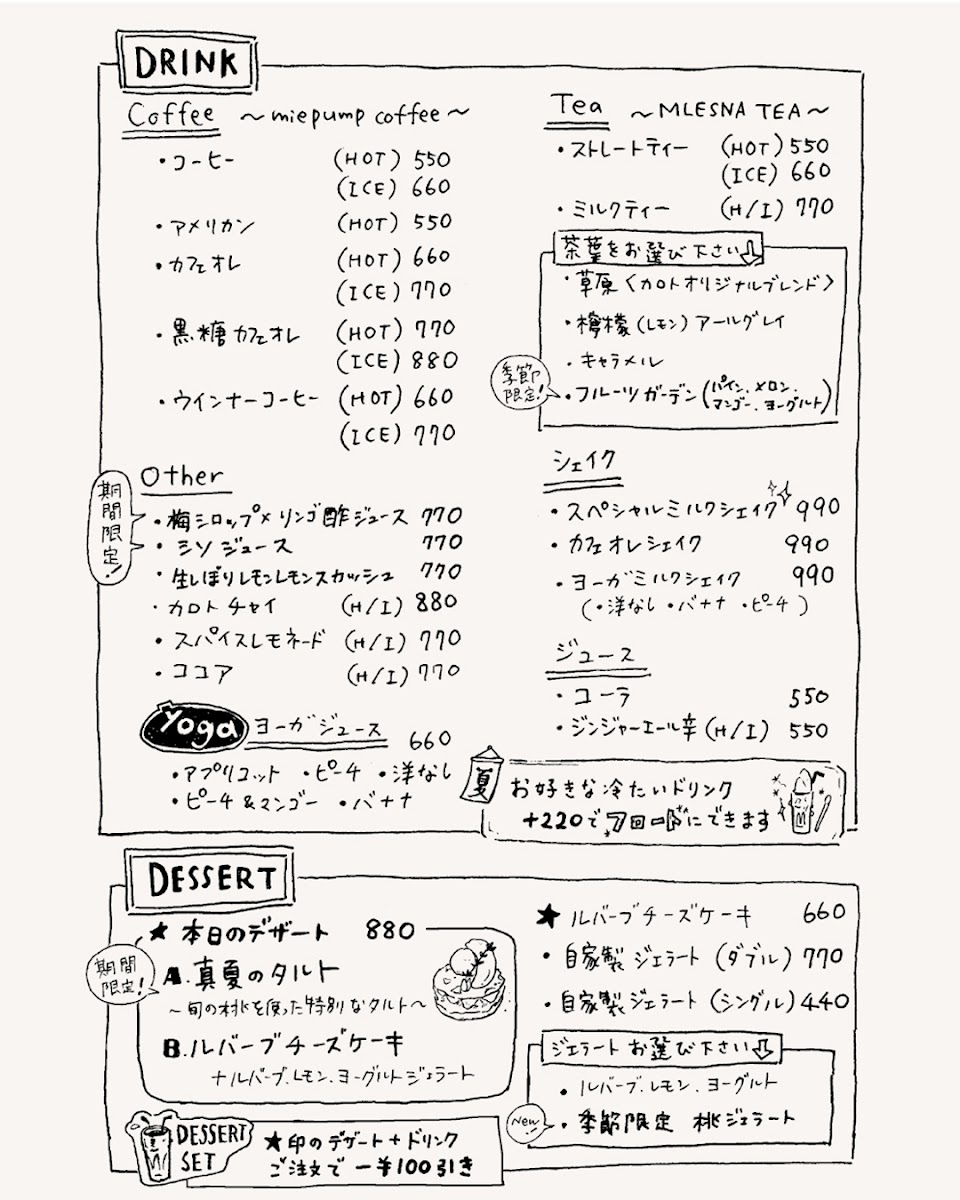 DRINK
Coffee ~miepump coffee~
・コーヒー (HOT) 550
(ICE) 660
・アメリカン (HOT) 550
・カフェオレ (HOT) 660
(ICE) 770
・黒糖カフェオレ (HOT) 770
(ICE) 880
・ウインナーコーヒー (HOT) 660
(ICE) 770
Other
期間限定!
・梅シロップ×リンゴ酢ジュース 770
・シソジュース 770
・生しぼりレモンレモンスカッシュ 770
・カロトチャイ (H/I) 880
・スパイスレモネード (H/I) 770
・ココア (H/I) 770
Yoga ヨーガジュース 660
・アプリコット ・ピーチ ・洋なし
・ピーチ&マンゴー ・バナナ
Tea ~MLESNA TEA~
・ストレートティー (HOT) 550
(ICE) 660
・ミルクティー (H/I) 770
茶葉をお選び下さい
・草原〈カロトオリジナルブレンド〉
・檸檬(レモン)アールグレイ
・キャラメル
季節限定!
・フルーツガーデン(パイン、メロン、
マンゴー、ヨーグルト)
シェイク
・スペシャルミルクシェイク 990
・カフェオレシェイク 990
・ヨーガミルクシェイク 990
(・洋なし ・バナナ ・ピーチ)
ジュース
・コーラ 550
・ジンジャーエール辛 (H/I) 550
夏
お好きな冷たいドリンク
+220でフロートにできます
DESSERT
★ 本日のデザート 880
期間限定!
A.真夏のタルト
~旬の桃を使った特別なタルト~
B.ルバーブチーズケーキ
+ルバーブ、レモン、ヨーグルトジェラート
DESSERT
SET
★印のデザート+ドリンク
ご注文で ー¥100引き
★ ルバーブチーズケーキ 660
・自家製ジェラート (ダブル) 770
・自家製ジェラート (シングル) 440
ジェラートお選び下さい
・ルバーブ、レモン、ヨーグルト
New!
・季節限定 桃ジェラート